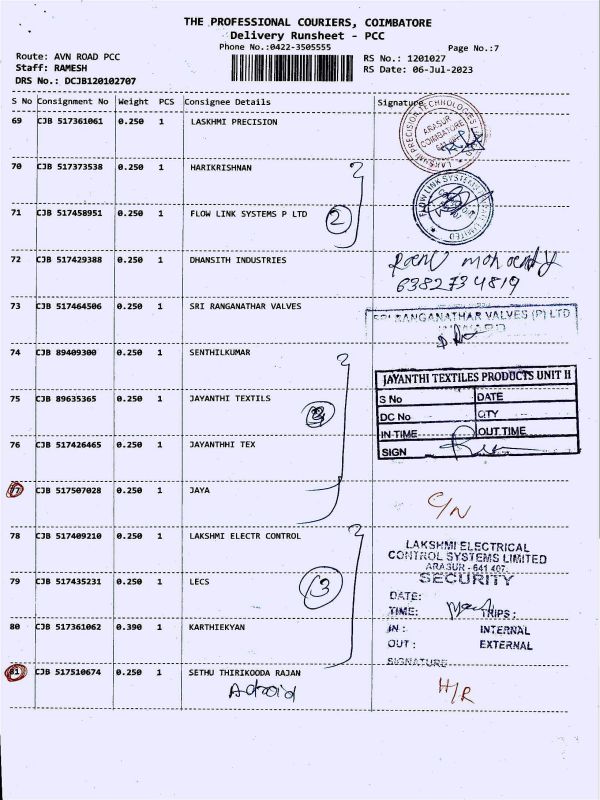 THE PROFESSIONAL COURIERS, COIMBATORE
Delivery Runsheet - PCC
Phone No.:0422-3505555
Page No.:7
Route: AVN ROAD PCC
RS No.: 1201027
Staff: RAMESH
RS Date: 06-Jul-2023
DRS No.: DCJB120102707
S No Consignment No Weight PCS Consignee Details Signature
69 CJB 517361061 0.250 1 LASKHMI PRECISION
LAKSHMI PRECISION TECHNOLOGIES
ARASUR
COIMBATORE
70 CJB 517373538 0.250 1 HARIKRISHNAN
71 CJB 517458951 0.250 1 FLOW LINK SYSTEMS P LTD
2
FLOW LINK SYSTEMS PRIVATE LIMITED
72 CJB 517429388 0.250 1 DHANSITH INDUSTRIES
6382734819
73 CJB 517464506 0.250 1 SRI RANGANATHAR VALVES
SRI RANGANATHAR VALVES (P) LTD
74 CJB 89409300 0.250 1 SENTHILKUMAR
JAYANTHI TEXTILES PRODUCTS UNIT II
75 CJB 89635365 0.250 1 JAYANTHI TEXTILS
S No DATE
DC No CITY
IN TIME OUT TIME
76 CJB 517426465 0.250 1 JAYANTHHI TEX
SIGN
77 CJB 517507028 0.250 1 JAYA
C/N
78 CJB 517409210 0.250 1 LAKSHMI ELECTR CONTROL
LAKSHMI ELECTRICAL
CONTROL SYSTEMS LIMITED
ARASUR - 641 407.
79 CJB 517435231 0.250 1 LECS
3
SECURITY
DATE:
TIME: TRIPS:
80 CJB 517361062 0.390 1 KARTHIEKYAN
IN : INTERNAL
OUT : EXTERNAL
SIGNATURE
81 CJB 517510674 0.250 1 SETHU THIRIKOODA RAJAN
H/R